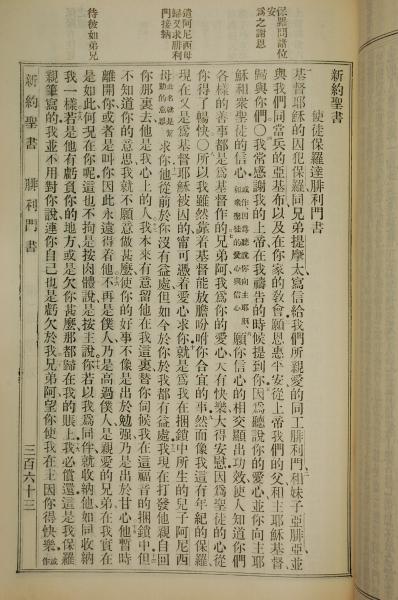 新約聖書
使徒保羅達腓利門書
基督耶穌的囚犯保羅同兄弟提摩太寫信給我們所親愛的同工腓利門和妹子亞腓亞並
與我們同當兵的亞基布以及在你家的敎會願恩惠平安從上帝我們的父和主耶穌基督
歸與你們〇我常感謝我的上帝在我禱告的時候提到你因爲聽說你的愛心並你向主耶
穌和衆聖徒的信心或作因爲聽說你向主耶穌和衆聖徒的愛心與信心願你信心的相交顯出功效使人知道你們
各樣的善事都是爲基督作的兄弟阿我爲你的愛心大有快樂大得安慰因爲聖徒的心從
你得了暢快〇所以我雖然靠着基督能放膽吩咐你合宜的事然而像我這有年紀的保羅
現在又是爲基督耶穌被囚的甯可憑着愛心求你就是爲我在捆鎖中所生的兒子阿尼西
母此名就是幫助的意思求你他從前於你沒有益處但如今於你於我都有益處我現在打發他親自回
你那裏去他是我心上的人我本來有意留他在我這裏替你伺候我在這福音的捆鎖中但
不知道你的意思我就不願意做甚麽使你的好事不像是出於勉强乃是出於甘心他暫時
離開你或者是叫你因此永遠得着他不再是僕人乃是高過僕人是親愛的兄弟在我實在
是如此何況在你呢這也不拘是按肉體說是按主說你若以我爲同伴就收納他如同收納
我一樣若是他有虧負你的地方或是欠你甚麽那都歸在我的賬上我必償還這是我保羅
親筆寫的我並不用對你說連你自己也是虧欠於我兄弟阿望你使我在主因你得快樂或作
新約聖書 腓利門書 三百六十三
保羅問諸位安
爲之謝恩
遣阿尼西母歸又求腓利門接納
待彼如弟兄